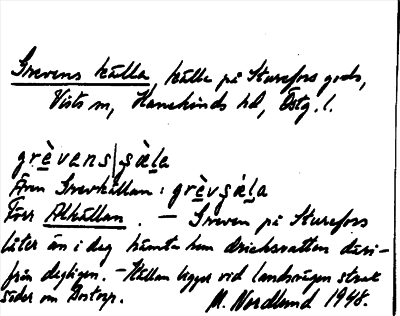 Grevens källa, källa på Sturefors gods,
Vists sn, Hanekinds hd, Östg. l.
grèvans|ɕæ̀la
Även Grevkällan: grèvɕæ̀la
Förr Alkällan. — Greven på Sturefors
låter än i dag hämta hem dricksvatten däri-
från dagligen. — Källan ligger vid landsvägen strax
söder om Bostorp. M. Nordlund 1948.